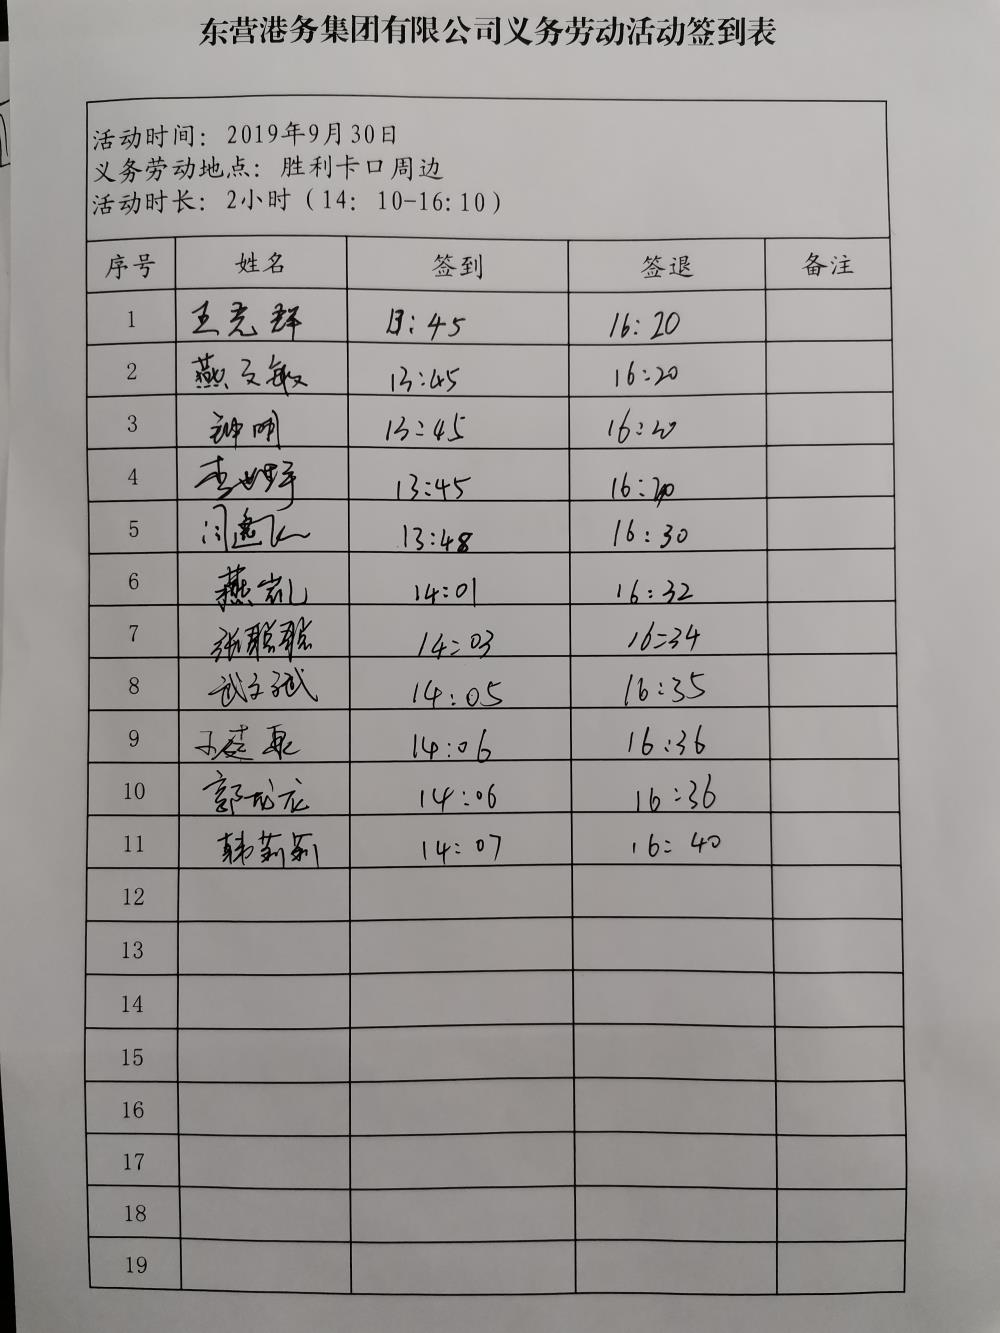 东营港务集团有限公司义务劳动活动签到表
活动时间：2019年9月30日
义务劳动地点：胜利卡口周边
活动时长：2小时（14：10-16:10）
序号 姓名 签到 签退 备注
1 王克群 13:45 16:20
2 燕文敏 13:45 16:20
3 钟明 13:45 16:20
4 13:45 16:20
5 13:48 16:30
6 燕岩礼 14:01 16:32
7 张聪聪 14:03 16:34
8 武文斌 14:05 16:35
9 14:06 16:36
10 郭龙龙 14:06 16:36
11 韩莉莉 14:07 16:40
12
13
14
15
16
17
18
19